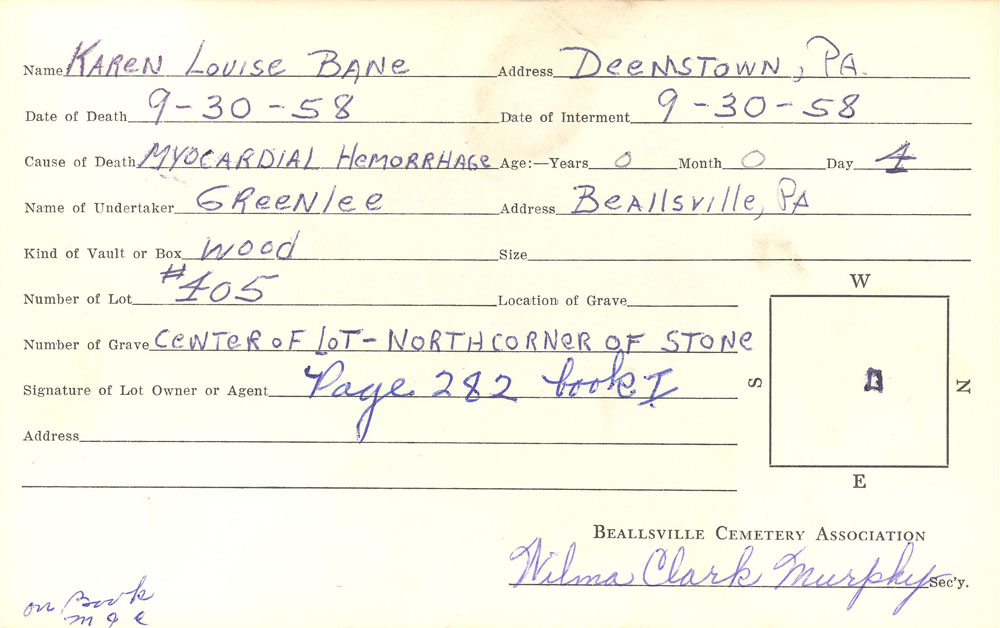 Name KAREN LOUISE BANE Address DEEMSTOWN, PA.
Date of Death 9-30-58 Date of Interment 9-30-58
Cause of Death MYOCARDIAL HEMORRHAGE Age:—Years 0 Month 0 Day 1
Name of Undertaker GREENlee Address BEAllsville, PA
Kind of Vault or Box wood Size
Number of Lot #105 Location of Grave
Number of Grave CENTER OF LOT - NORTH CORNER OF STONE
Signature of Lot Owner or Agent Page 282 book I
Address
W
S
N
E
BEALLSVILLE CEMETERY ASSOCIATION
Wilma Clark Murphy Sec'y.
on Book